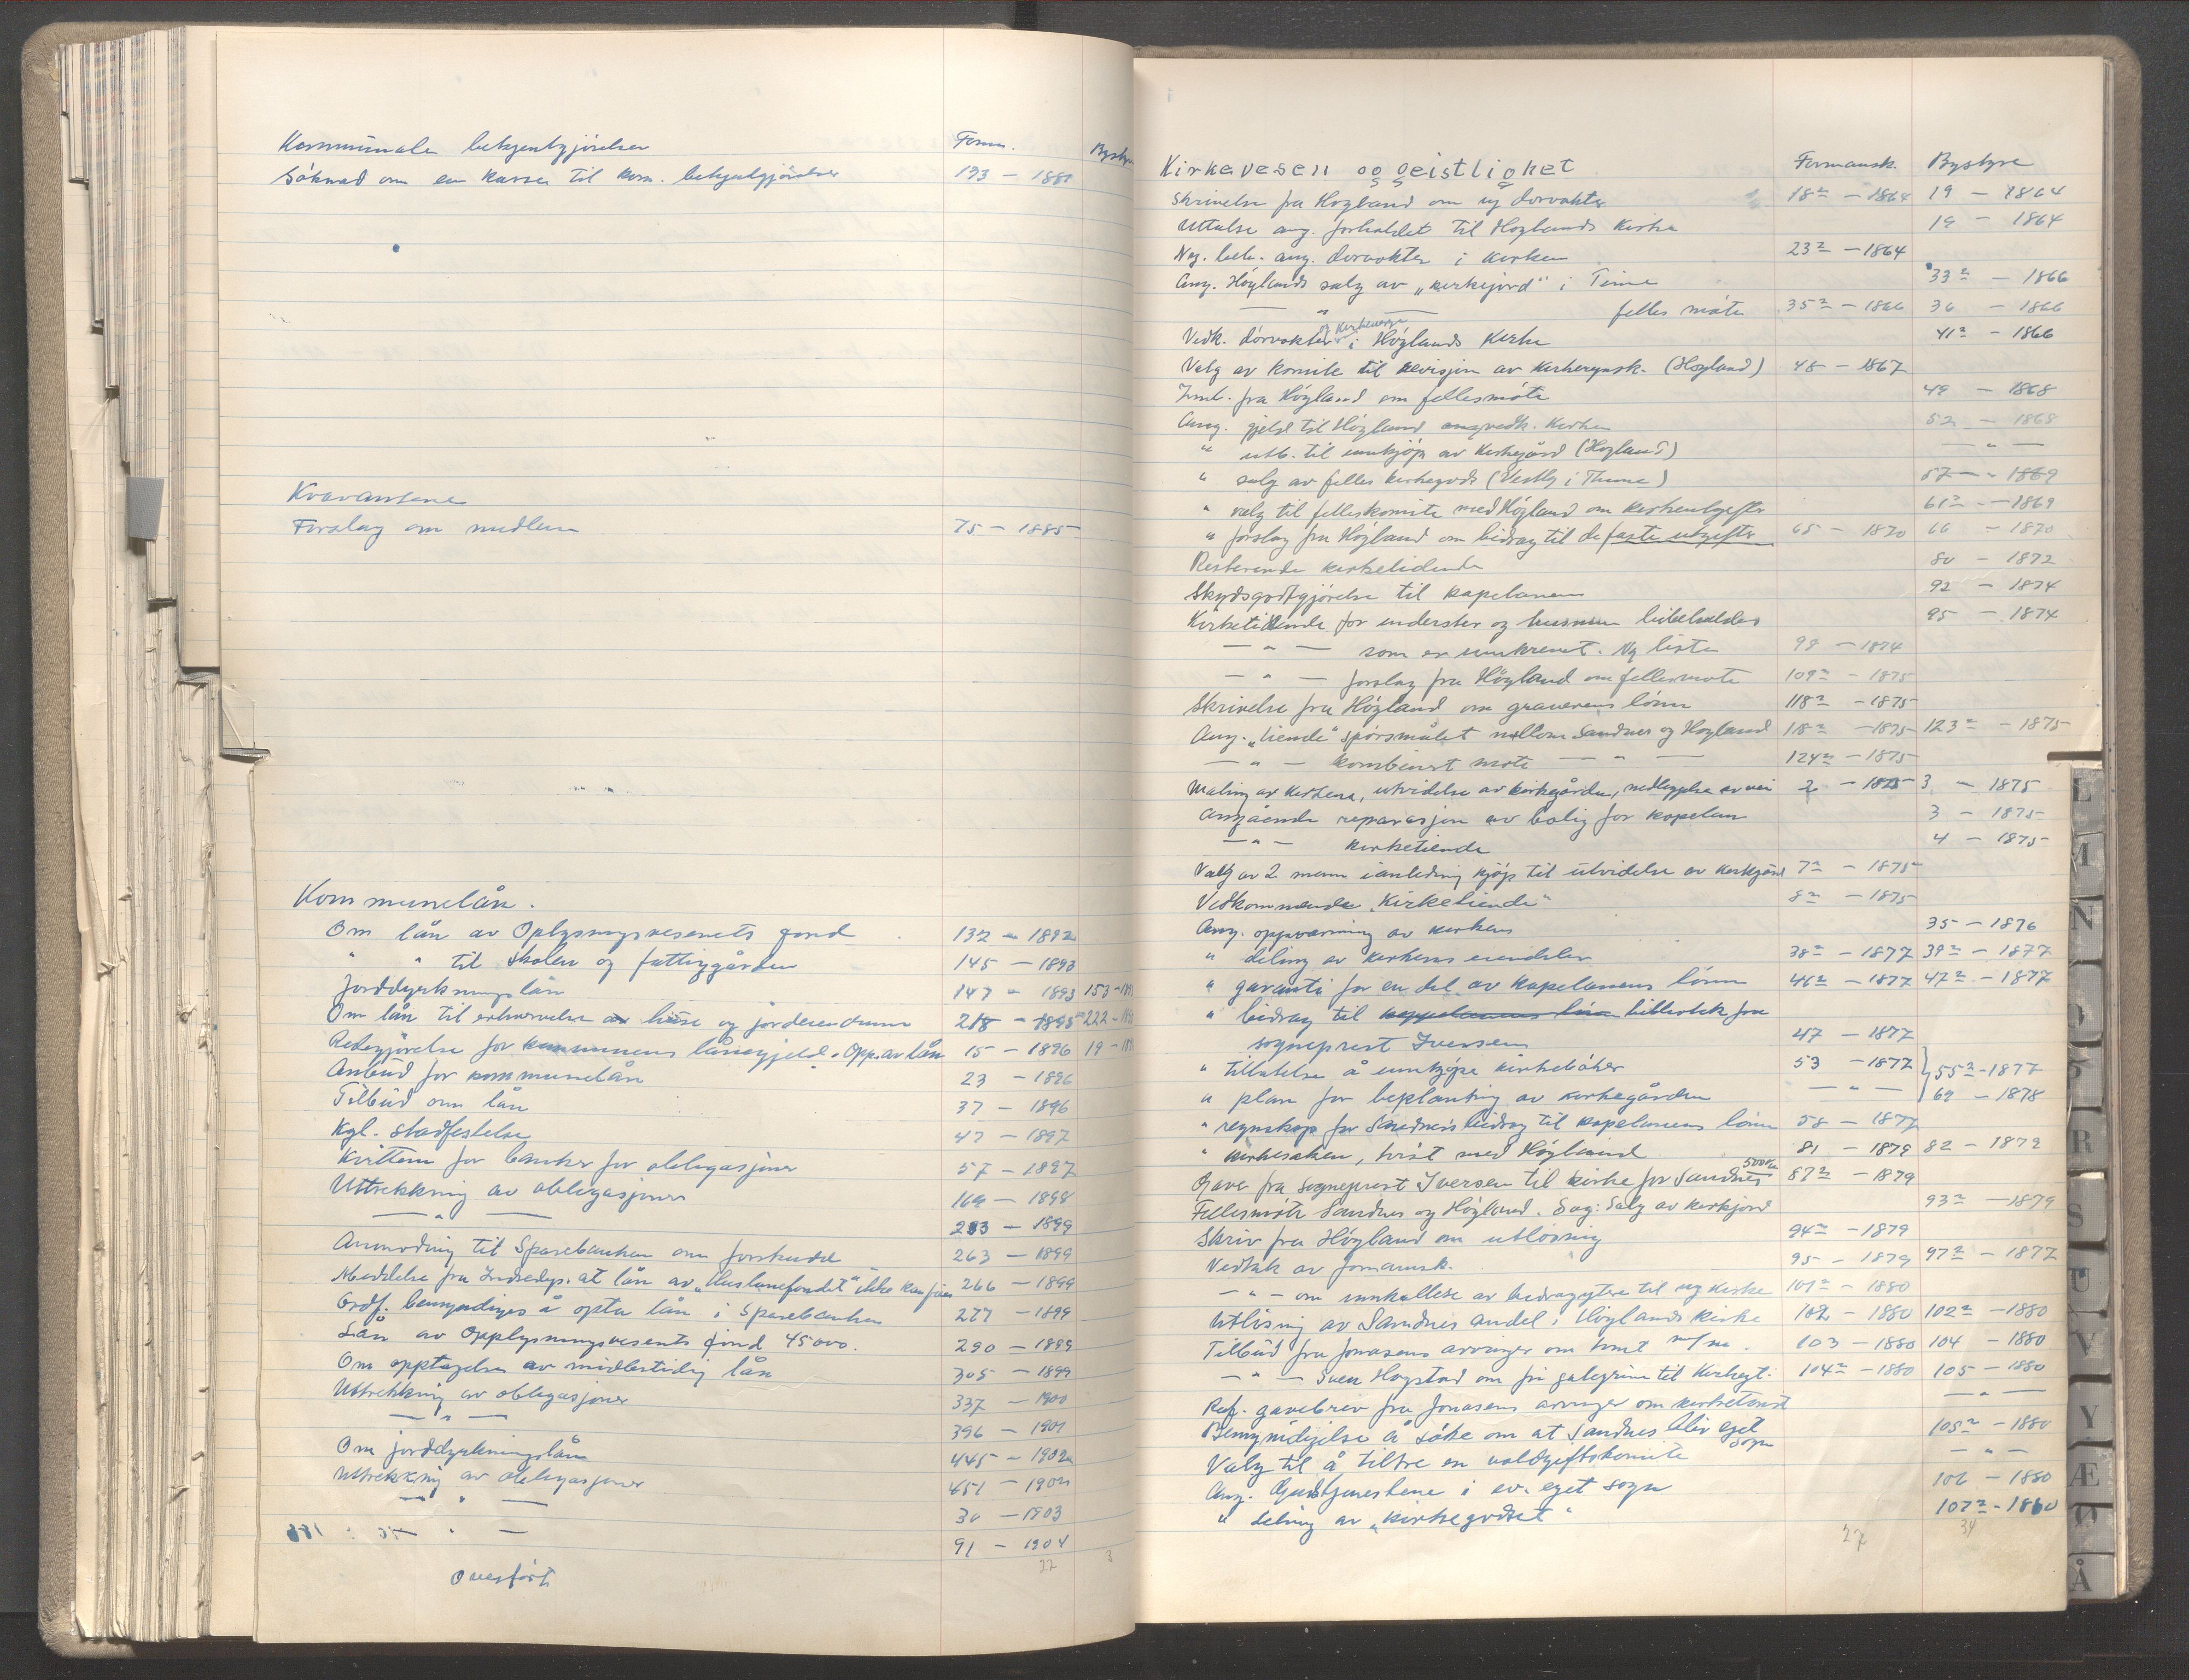 Kommunale bekjentgjørelser Form. Bystyre
Søknad om en kasse til kom. bekjentgjørelser 193 – 1881
Kravansene
Forslag om medlem 75 – 1885
Kommunelån.
Om lån av Oplysningsvesenets fond 132 – 1892
" " til skolen og fattiggården 145 – 1893
Jorddyrkningslån 147 – 1893 153 –
Om lån til erhvervelse av huse og jordeiendom 218 – 1895 222 –
Redegjørelse for kommunens lånegjeld. Opp. av lån 15 – 1896 19 –
Anbud for kommunelån 23 – 1896
Tilbud om lån 37 – 1896
Kgl. stadfestelse 47 – 1897
Kvittem for banker for obligasjoner 57 – 1897
Uttrekkning av obligasjoner 169 – 1898
— " — 283 – 1899
Anmodning til Sparebanken om forskudd 263 – 1899
Meddelelse fra Indredep. at lån av „Huslånefondet" ikke kan 266 – 1899
Ordf. bemyndiges å opta lån i Sparebanken 277 – 1899
Lån av Opplysningsvesents fond 45000. 290 – 1899
Om opptagelse av midlertidig lån 305 – 1899
Uttrekkning av obligasjoner 337 – 1900
— " — 396 – 1901
Om jorddyrkningslån 445 – 1902
Uttrekkning av obligasjoner 451 – 1902
— " — 30 – 1903
— " — 91 – 1904
Overført 22 3
Kirkevesen og geistlighet Formansk. Bystyre
Skrivelse fra Høyland om ny dørvokter 18² – 1864 19 – 1864
Uttalse ang. forholdet til Høylands kirke 19 – 1864
Ny. beh. ang. dørvokter i kirken 23² – 1864
Ang. Høylands salg av „kirkejord" i Time 33² – 1866
— " — felles møte 35² – 1866 36 – 1866
Vedk. dørvokter og kirkeverge i Høylands kirke 41² – 1866
Valg av komite til revisjon av kirkeregnsk. (Høyland) 48 – 1867
Innb. fra Høyland om fellesmøte 49 – 1868
Ang. gjeld til Høyland angvedk. kirken 52 – 1868
" utb. til innkjøp av kirkegård (Høyland) — " —
" salg av felles kirkegods (Vestly i Thime) 57 – 1869
" valg til felleskomite med Høyland om kirkeutgifter 61² – 1869
" forslag fra Høyland om bidrag til de faste utgifter 65 – 1870 66 – 1870
Resterende kirketiende 80 – 1872
Skydsgodtgjørelse til kapelanen 92 – 1874
Kirketiende for inderster og husmen bibeholdes 95 – 1874
— " — som er innkrevet. Ny liste 98 – 1874
— " — forslag fra Høyland om fellesmøte 109² – 1875
Skrivelse fra Høyland om graverens lønn 118² – 1875
Ang. „tiende" spørsmålet mellom Sandnes og Høyland 118² – 1875 123² – 1875
— " — kombinert møte — " — 124² – 1875
Maling av kirken, utvidelse av kirkegården, nedleggelse av vei 2 – 1875 3 – 1875
Angående reparasjon av bolig for kapelan 3 – 1875
— " — kirketiende 4 – 1875
Valg av 2 menn i anledning kjøp til utvidelse av kirkegård 7² – 1875
Vedkommende „Kirketiende" 8² – 1875
Ang. oppvarming av kirken 35 – 1876
" deling av kirkens eiendeler 38² – 1877 39² – 1877
" garanti for en del av kapelanens lønn 46² – 1877 47² – 1877
" bidrag til kappelanens lønn bibliotek for
sogneprest Iversen 47 – 1877
" tillatelse å innkjøpe kirkebøker 53 – 1877 } 55² – 1877
" plan for beplanting av kirkegården — " — 69 – 1878
" regnskap for Sandnes bidrag til kapelanens lønn 58 – 1877
" kirkesaken, tvist med Høyland 81 – 1879 82 – 1879
Gave fra sogneprest Iversen til kirke for Sandnes 500 kr 87² – 1879
Fellesmøte Sandnes og Høyland. Sag: Salg av kirkjord 93² – 1879
Skriv fra Høyland om utløsning 94² – 1879
Vedtak av formansk. 95 – 1879 97² – 1877
— " — om innkallelse av bidragytere til ny kirke 101² – 1880
Utløsning av Sandnes andel i Høylands kirke 102 – 1880 102² – 1880
Tilbud fra Jonasens arvinger om tomt m/m. 103 – 1880 104 – 1880
— " — Sven Høgstad om fri gategrunn til Kirkegt. 104² – 1880 105 – 1880
Ref. gavebrev fra Jonasens arvinger om kirketomt — " —
Bemyndigelse å søke om at Sandnes blir eget sogn 105² – 1880
Valg til å tiltre en voldgiftskomite — " —
Ang. Gudstjenestene i ev. eget sogn 106 – 1880
" deling av „kirkegodset" 107² – 1880
27 34
L
M
N
O
P
R
S
U
V
Y
Æ
Ø
Å